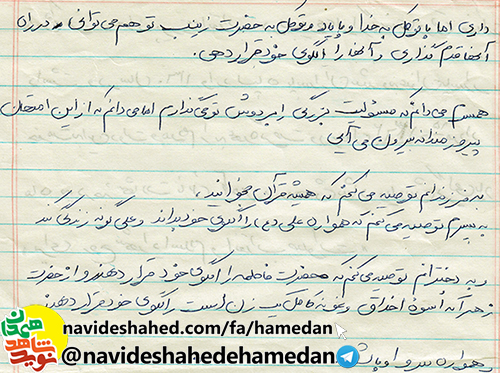 داری اما با توکل به خدا و با یاد و توکل به حضرت زینب تو هم می‌توانی در راه
آنها قدم گذاری و آنها را الگوی خود قرار دهی.
همسرم می‌دانم که مسئولیت بزرگی را بر دوش تو می‌گذارم اما می‌دانم که از این امتحان
پیروزمندانه بیرون می‌آیی
به فرزندانم توصیه می‌کنم که همیشه قرآن بخوانید،
به پسرم توصیه می‌کنم که همواره علی (ع) را الگوی خود بداند و علی گونه زندگی کند
و به دخترانم توصیه می‌کنم که حضرت فاطمه را الگوی خود قرار دهند و از حضرت
زهرا که اسوه اخلاق و نمونه کامل یک زن است را الگوی خود قرار دهند
و همواره پیرو او باشند
نوید شاهد همدان
navideshahed.com/fa/hamedan
@navideshahedehamedan